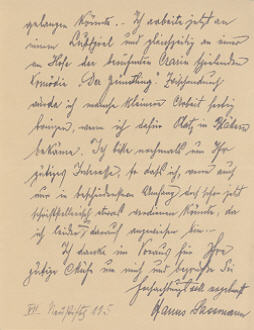 gelangen könnte. – Ich arbeite jetzt an
einem Lustspiel und gleichzeitig an einer
am Hofe der Zarin spielenden
Komödie „Der Günstling". Zwischendurch
würde ich manche kleinere Arbeit fertig
bringen, wenn ich dafür Platz in Blättern
bekäme. Ich bitte nochmals um Ihr
gütiges Interesse, so daß ich, wenn auch
nur in bescheidenstem Umfang, doch schon jetzt
schriftstellerisch etwas verdienen könnte, da
ich leider darauf angewiesen bin. –
Ich danke im Voraus für Ihre
gütige Mühe um mich und begrüße Sie
hochachtungsvoll ergebenst
Hanns Sassmann
VII. Neustiftg 115